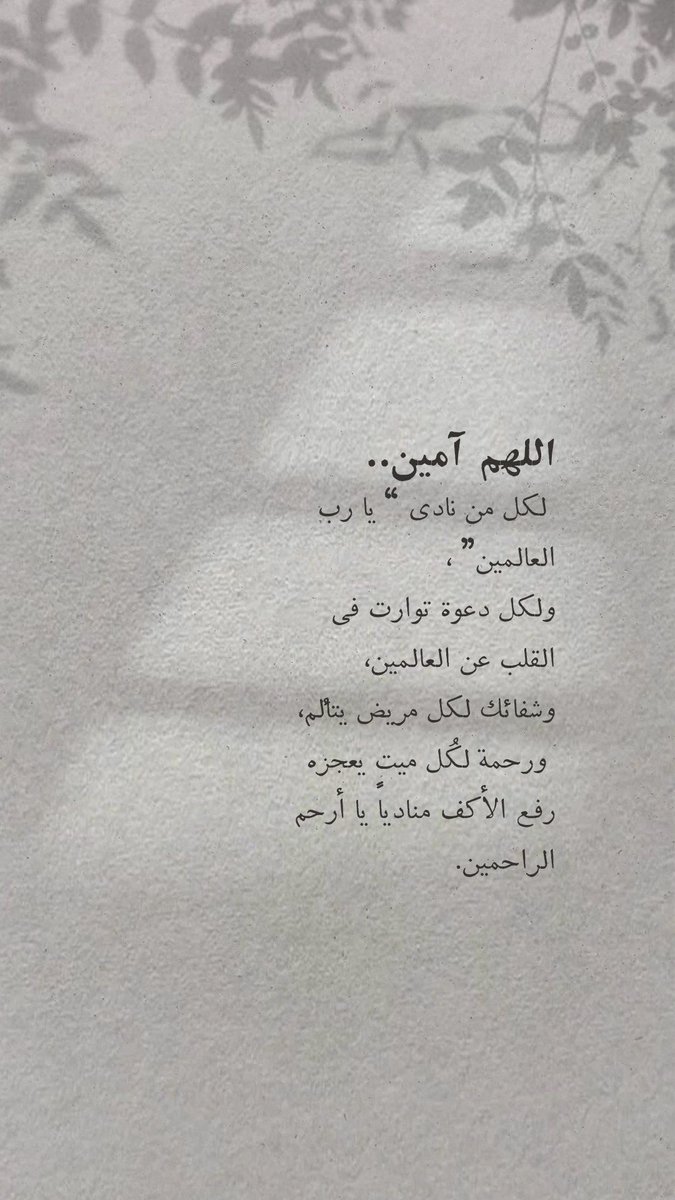 اللهم آمين..
لكل من نادى “ يا رب
العالمين” ،
ولكل دعوة توارت فى
القلب عن العالمين،
وشفائك لكل مريض يتألم،
ورحمة لكُل ميتٍ يعجزه
رفع الأكف منادياً يا أرحم
الراحمين.